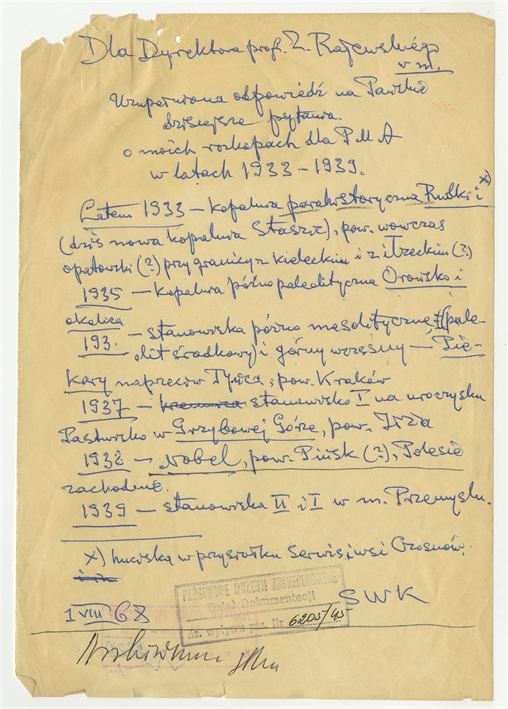 Dla Dyrektora prof. Z. Rajewskiego
w m.
Uzupełniona odpowiedź na Pańskie
dzisiejsze pytania
o moich rozkopach dla PMA
w latach 1933 – 1939.
Latem 1933 – kopalnia parahistoryczna Rudki i x)
(dziś nowa kopalnia Staszic), pow. wówczas
opatowski (?) przy granicy z kieleckim i z iłżeckim (?)
1935 – kopalnia późno paleolityczna Orońsko i
okolica
193. – stanowiska późno mezolityczne i (pale-
olit środkowy) i górny wczesny – Pie-
kary naprzeciw Tyńca, pow. Kraków
1937 – stanowisko I na uroczysku
Pastwisko w Grzybowej Górze, pow. Iłża
1938 – Nobel, pow. Pińsk (?), Polesie
zachodnie.
1939 – stanowiska II i I w m. Przemyślu.
x) huciska w przysiółku Serwis, wsi
1 VIII 68
SWK
PAŃSTWOWE MUZEUM ARCHEOLOGICZNE
Dział Dokumentacji
ks. wpływu Nr 6205/45